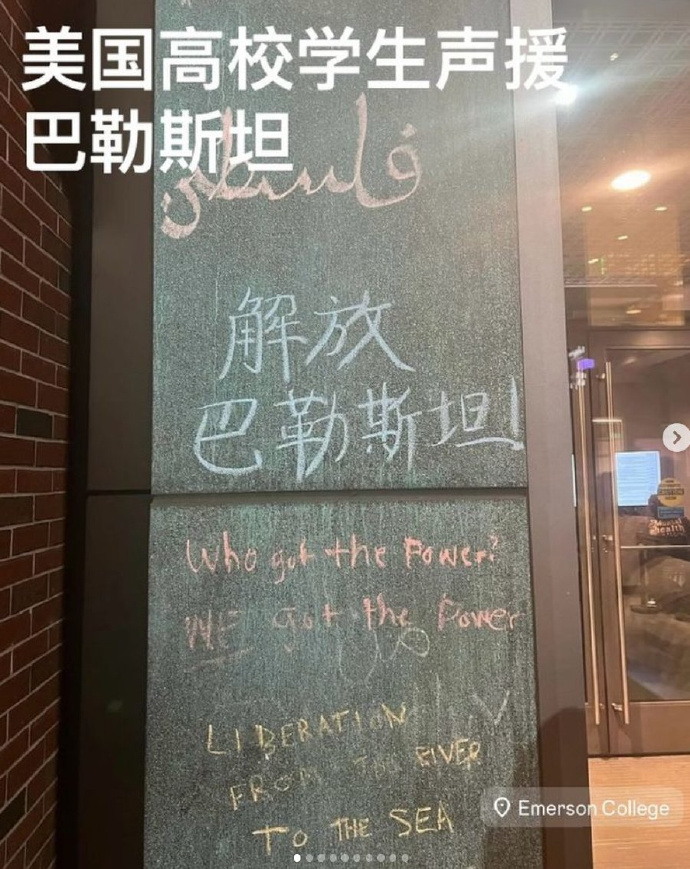 美国高校学生声援
巴勒斯坦
فلسطين
解放
巴勒斯坦!
Who got the Power?
WE got the Power
LIBERATION
FROM THE RIVER
TO THE SEA
Emerson College